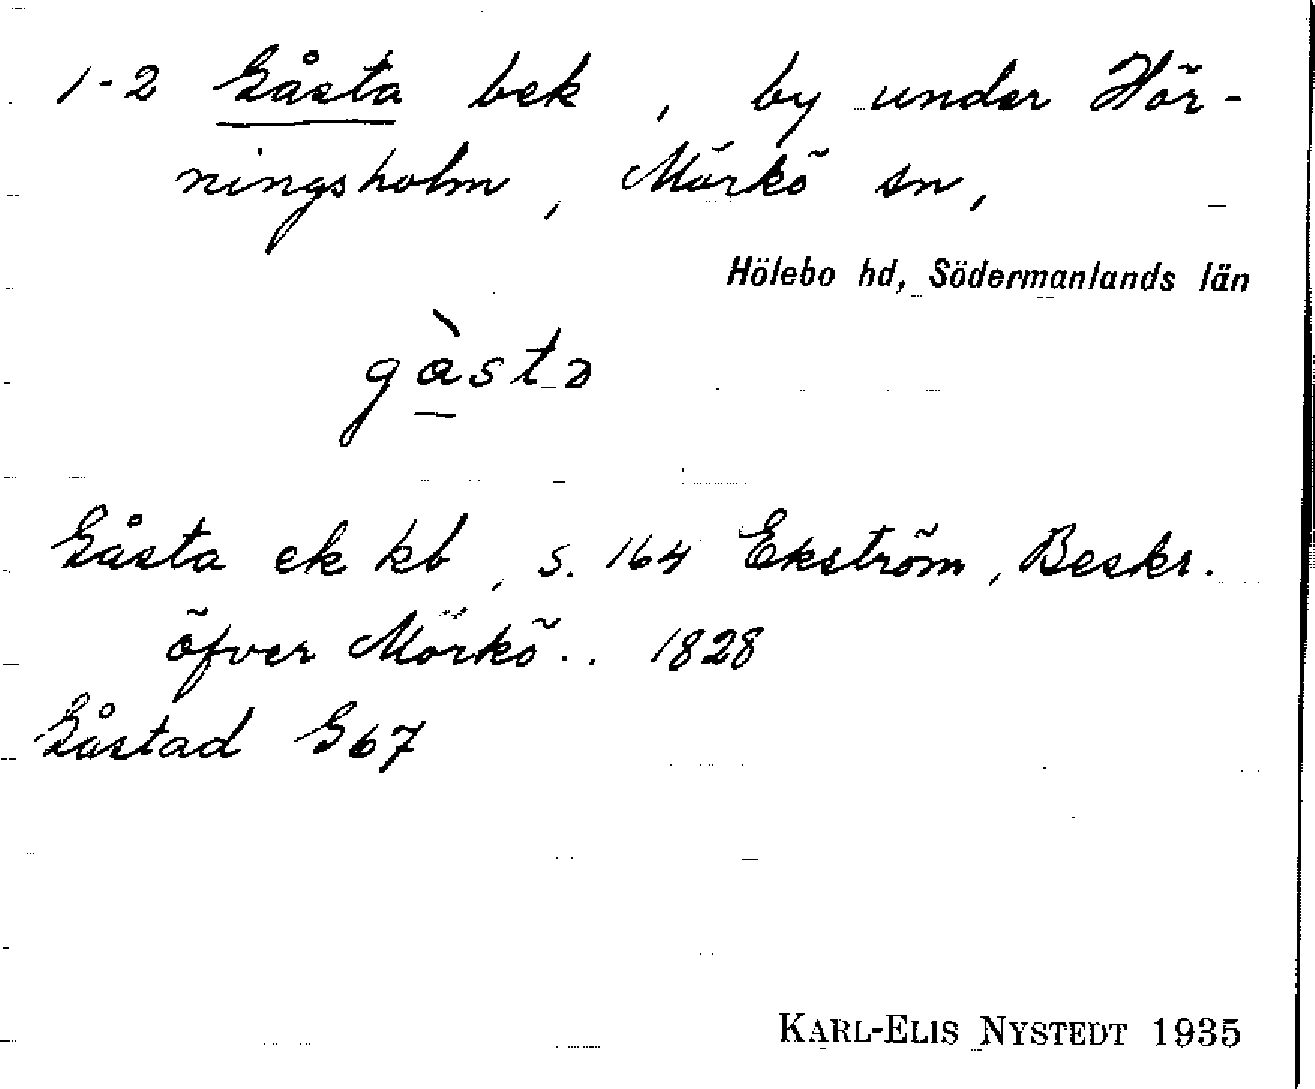 1-2 Gåsta bek , by under Hör-
ningsholm , Mörkö sn ,
Hölebo hd, Södermanlands län
gàsta
Gåsta ek kb , s. 164 Ekström , Beskr.
öfver Mörkö .. 1828
Gåstad G67
KARL-ELIS NYSTEDT 1935